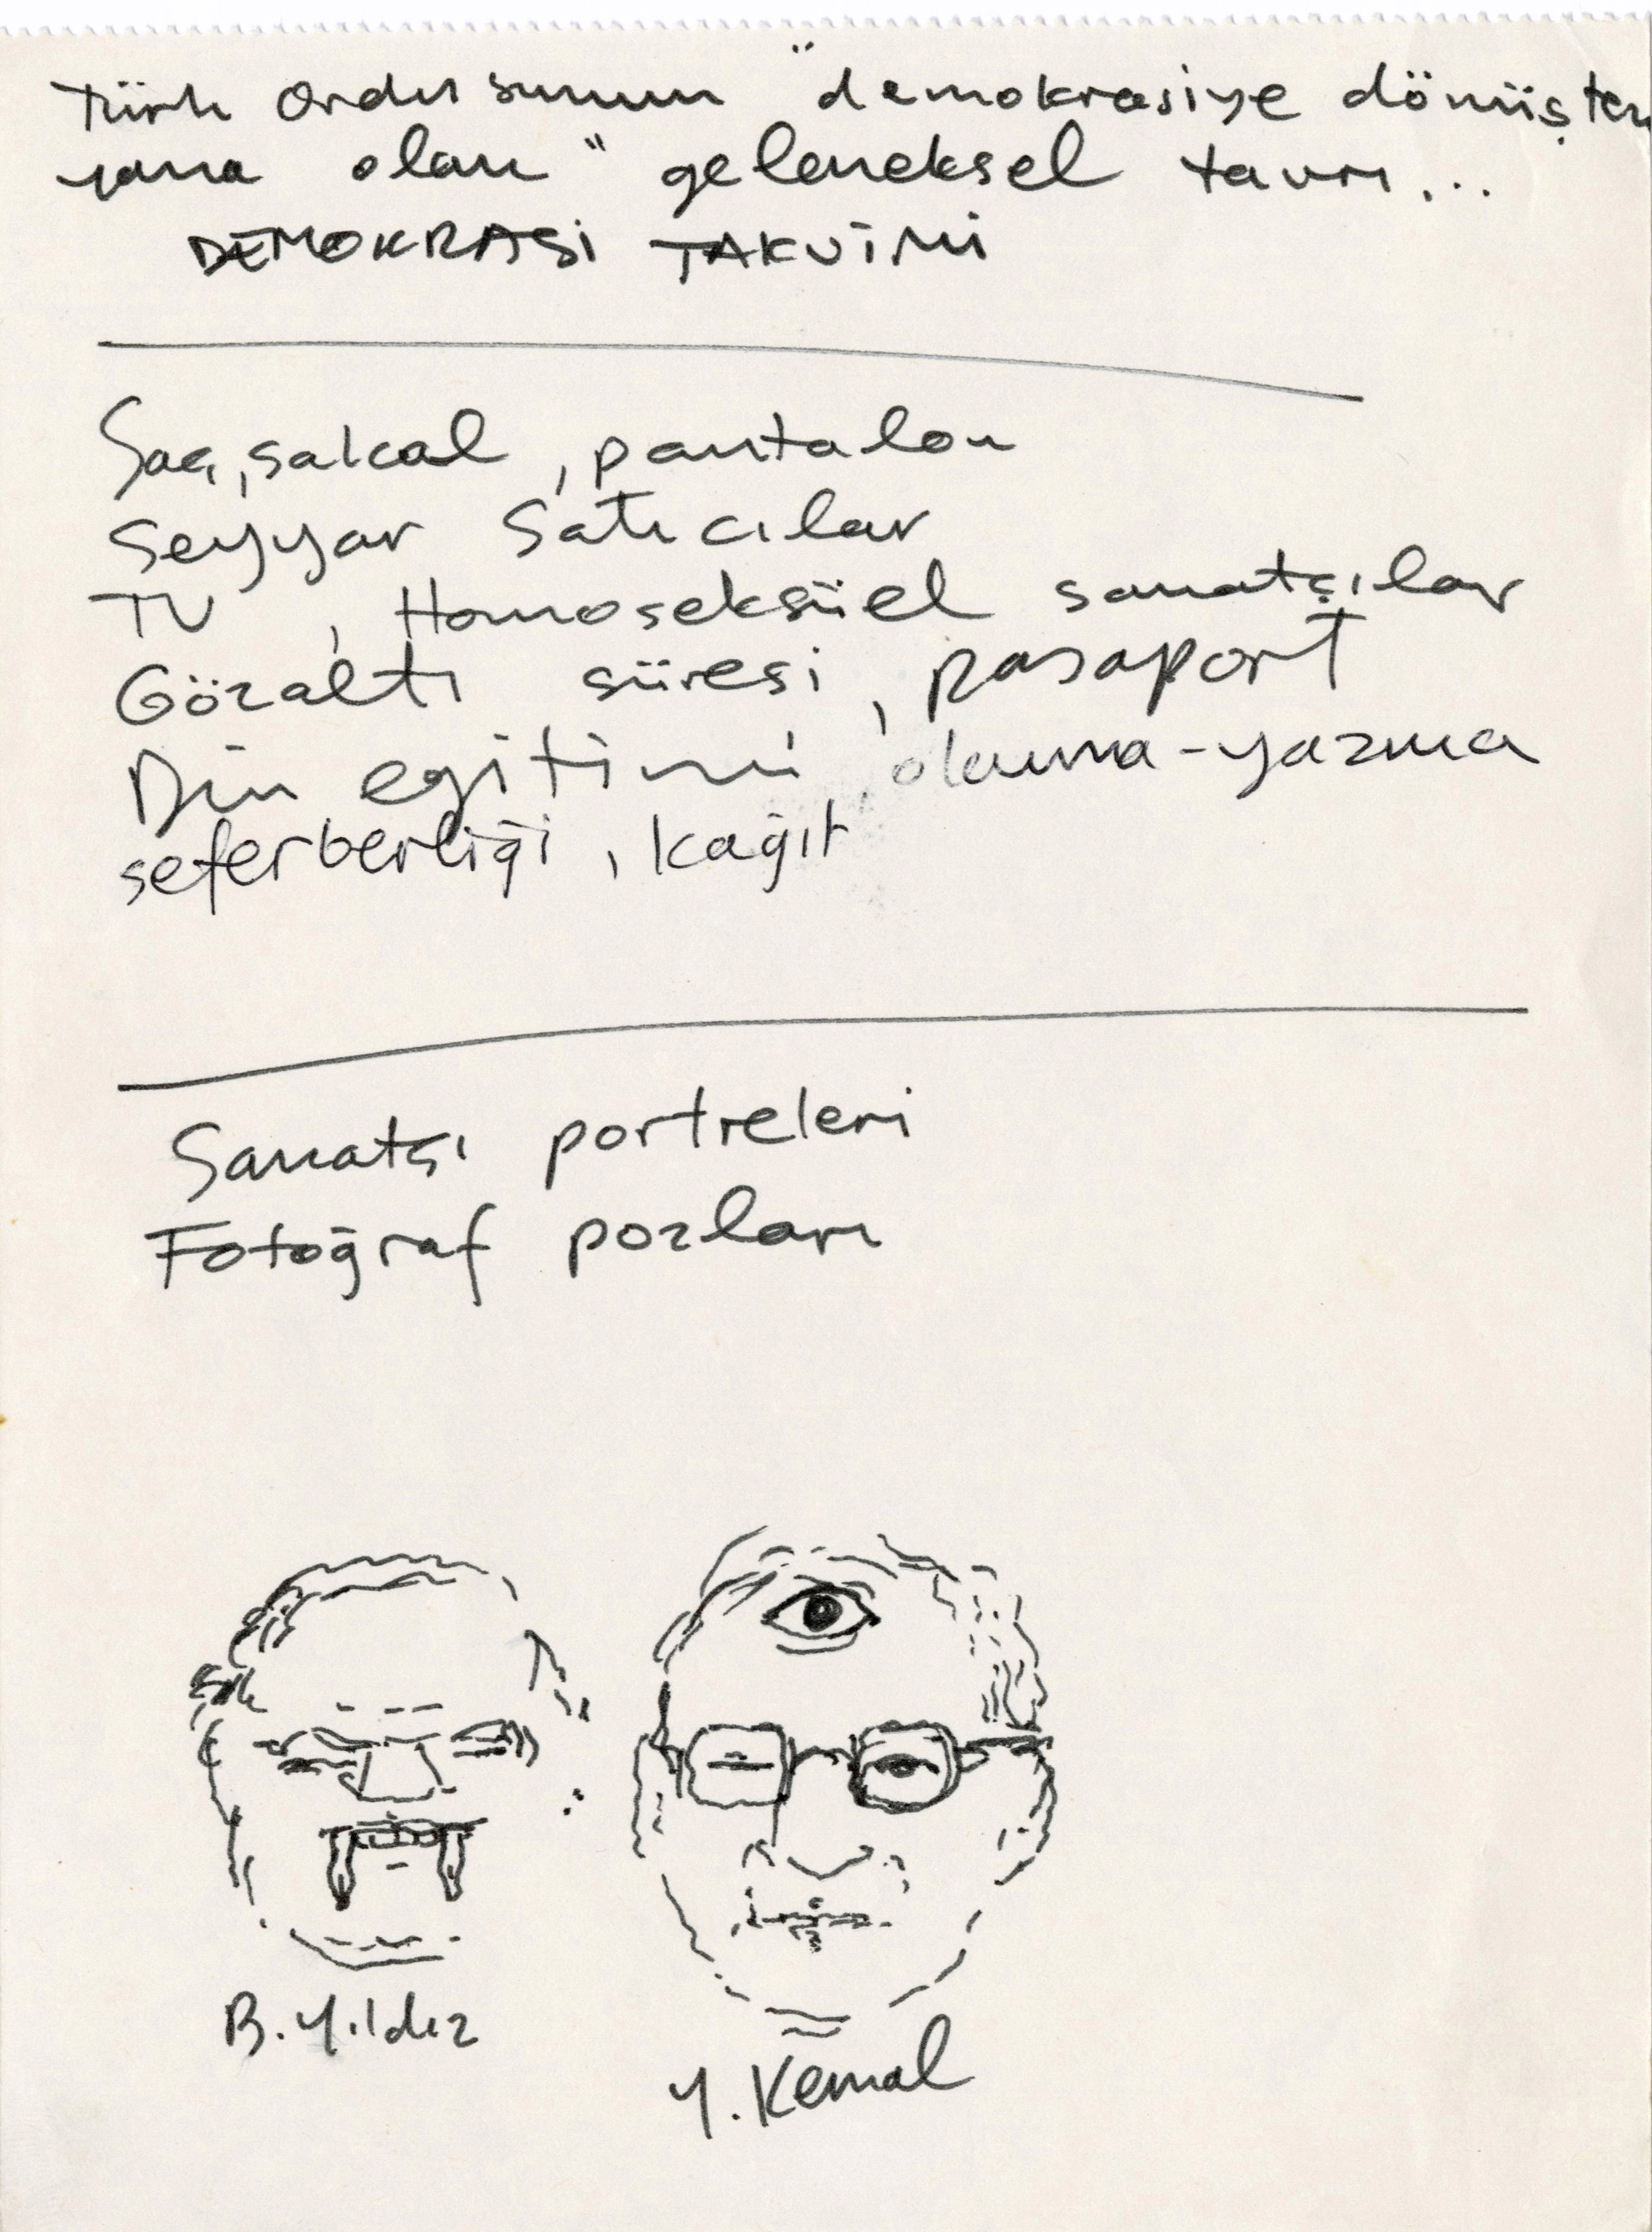 Türk Ordusunun "demokrasiye dönüşten
yana olan" geleneksel tavrı...
DEMOKRASİ TAKVİMİ
Saç, sakal, pantalon
Seyyar Satıcılar
TV, Homoseksüel sanatçılar
Gözaltı süresi, pasaport
Din eğitimi, okuma-yazma
seferberliği, kağıt
Sanatçı portreleri
Fotoğraf pozları
B. Yıldız
Y. Kemal